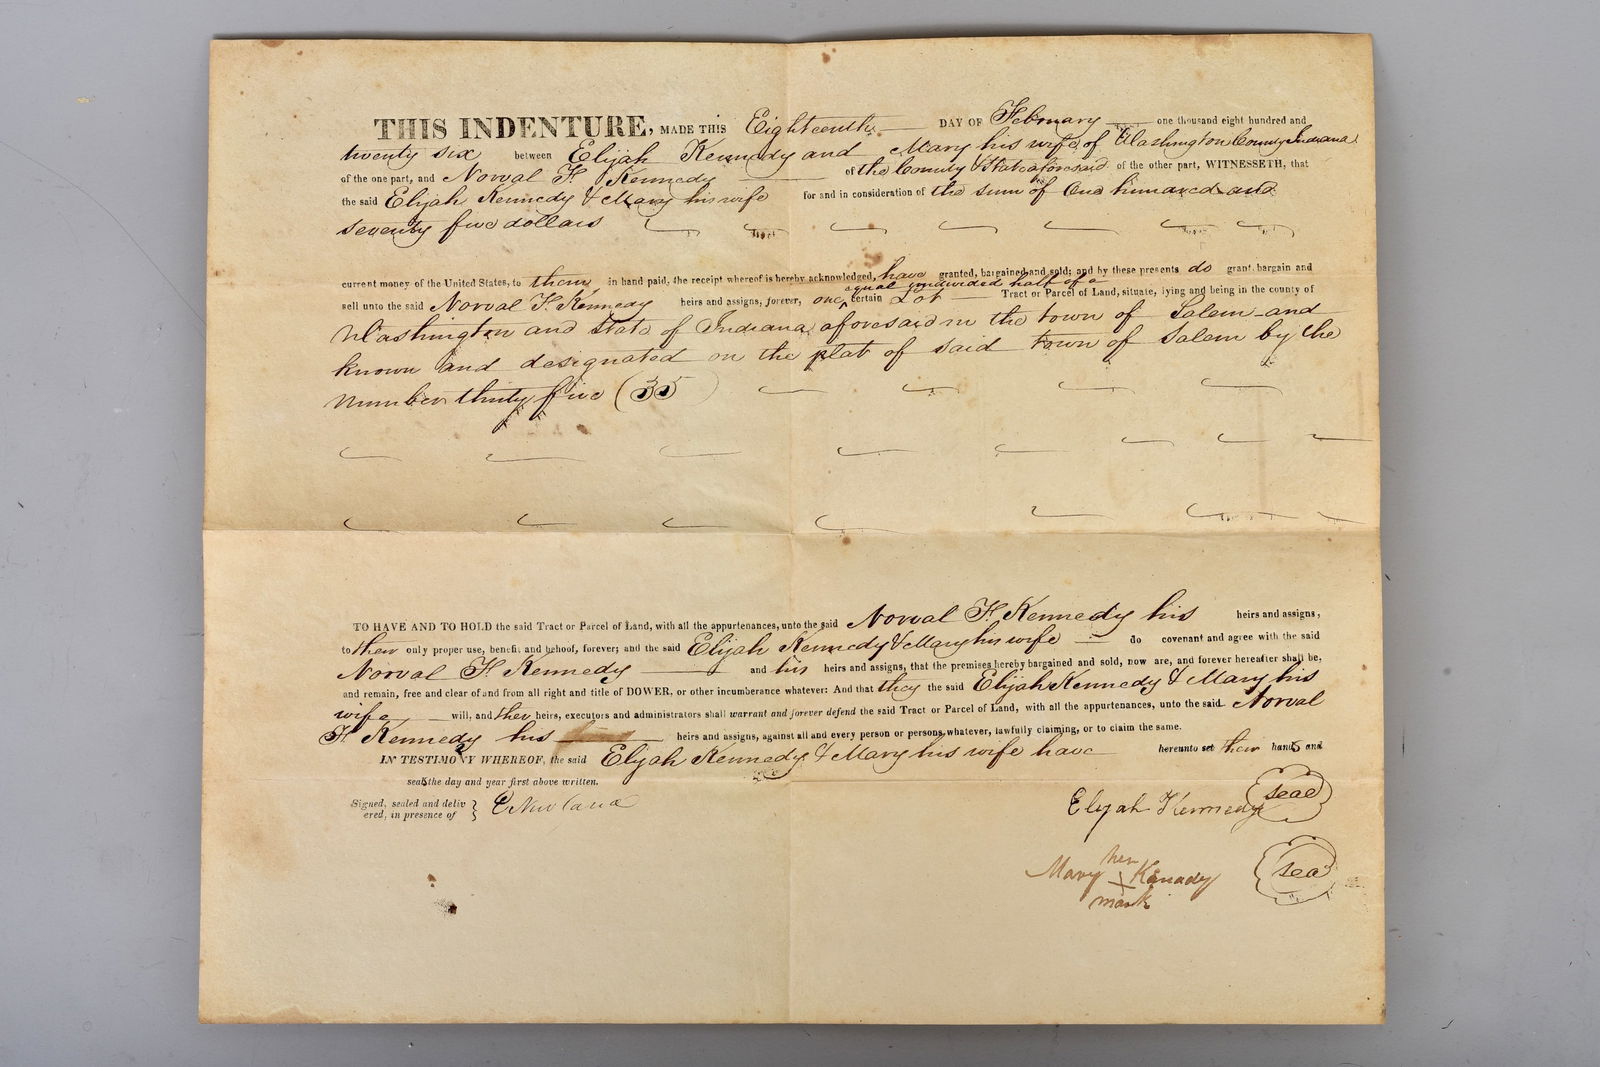 THIS INDENTURE, MADE THIS Eighteenth DAY OF February one thousand eight hundred and
twenty six between Elijah Kennedy and Mary his wife of Washington County Indiana
of the one part, and Norval F. Kennedy of the County & State aforesaid of the other part, WITNESSETH, that
the said Elijah Kennedy & Mary his wife for and in consideration of the sum of One hundred and
seventy five dollars
current money of the United States, to them in hand paid, the receipt whereof is hereby acknowledged, have granted, bargained and sold; and by these presents do grant, bargain and
equal undivided half of a
sell unto the said Norval F. Kennedy heirs and assigns, forever, one certain Lot Tract or Parcel of Land, situate, lying and being in the county of
Washington and State of Indiana aforesaid in the town of Salem and
known and designated on the plat of said town of Salem by the
number thirty five (35)
TO HAVE AND TO HOLD the said Tract or Parcel of Land, with all the appurtenances, unto the said Norval F. Kennedy his heirs and assigns,
to their only proper use, benefit and behoof, forever; and the said Elijah Kennedy & Mary his wife do covenant and agree with the said
Norval F. Kennedy and his heirs and assigns, that the premises hereby bargained and sold, now are, and forever hereafter shall be,
and remain, free and clear of and from all right and title of DOWER, or other incumberance whatever: And that they the said Elijah Kennedy & Mary his
wife will, and their heirs, executors and administrators shall warrant and forever defend the said Tract or Parcel of Land, with all the appurtenances, unto the said Norval
F. Kennedy his heirs and assigns, against all and every person or persons whatever, lawfully claiming, or to claim the same.
IN TESTIMONY WHEREOF, the said Elijah Kennedy & Mary his wife have hereunto set their hands and
seals the day and year first above written.
Signed, sealed and deliv
ered, in presence of } E Newland
Elijah Kennedy seal
her
Mary X Kanady seal
mark